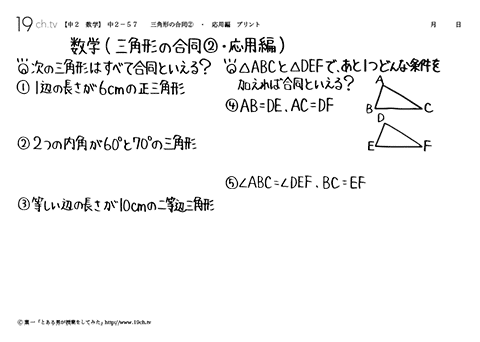 19ch.tv 【中2 数学】 中2-57 三角形の合同② ・ 応用編 プリント 月 日
数学(三角形の合同②・応用編)
Q次の三角形はすべて合同といえる?
①1辺の長さが6cmの正三角形
②2つの内角が60°と70°の三角形
③等しい辺の長さが10cmの二等辺三角形
Q△ABCと△DEFで、あと1つどんな条件を
加えれば合同といえる?
④AB=DE、AC=DF
A
B C
D
E F
⑤∠ABC=∠DEF、BC=EF
© 葉一「とある男が授業をしてみた」http://www.19ch.tv